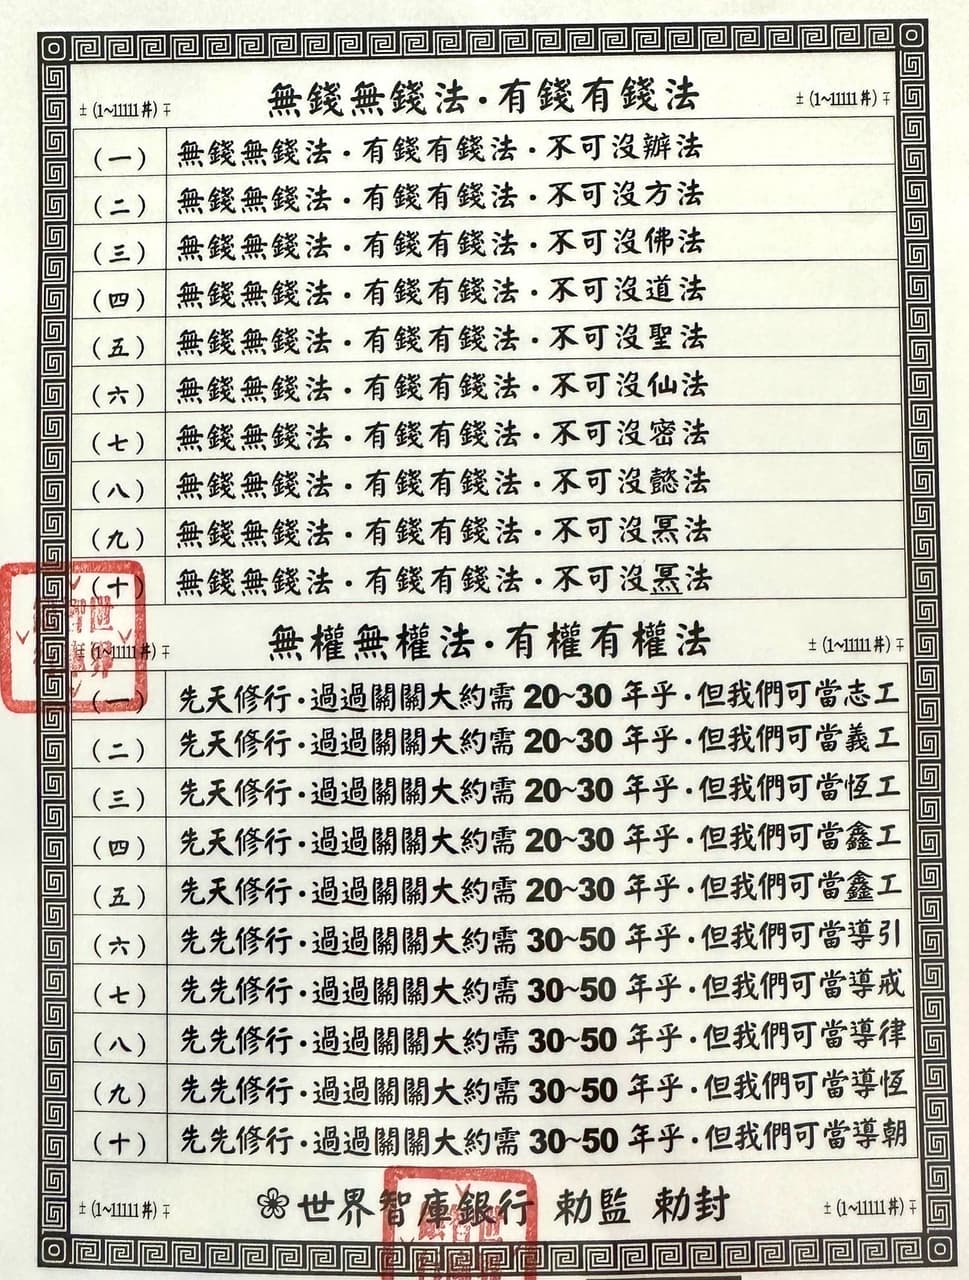 ±(1~11111丼)∓ 無錢無錢法·有錢有錢法 ±(1~11111丼)∓
(一) 無錢無錢法·有錢有錢法·不可沒辦法
(二) 無錢無錢法·有錢有錢法·不可沒方法
(三) 無錢無錢法·有錢有錢法·不可沒佛法
(四) 無錢無錢法·有錢有錢法·不可沒道法
(五) 無錢無錢法·有錢有錢法·不可沒聖法
(六) 無錢無錢法·有錢有錢法·不可沒仙法
(七) 無錢無錢法·有錢有錢法·不可沒密法
(八) 無錢無錢法·有錢有錢法·不可沒懿法
(九) 無錢無錢法·有錢有錢法·不可沒法
(十) 無錢無錢法·有錢有錢法·不可沒法
(1~11111丼)∓ 無權無權法·有權有權法 ±(1~11111丼)∓
(一) 先天修行·過過關關大約需 20~30 年乎·但我們可當志工
(二) 先天修行·過過關關大約需 20~30 年乎·但我們可當義工
(三) 先天修行·過過關關大約需 20~30 年乎·但我們可當恆工
(四) 先天修行·過過關關大約需 20~30 年乎·但我們可當鑫工
(五) 先天修行·過過關關大約需 20~30 年乎·但我們可當鑫工
(六) 先先修行·過過關關大約需 30~50 年乎·但我們可當導引
(七) 先先修行·過過關關大約需 30~50 年乎·但我們可當導戒
(八) 先先修行·過過關關大約需 30~50 年乎·但我們可當導律
(九) 先先修行·過過關關大約需 30~50 年乎·但我們可當導恆
(十) 先先修行·過過關關大約需 30~50 年乎·但我們可當導朝
±(1~11111丼)∓ 世界智庫銀行 勅監 勅封 ±(1~11111丼)∓